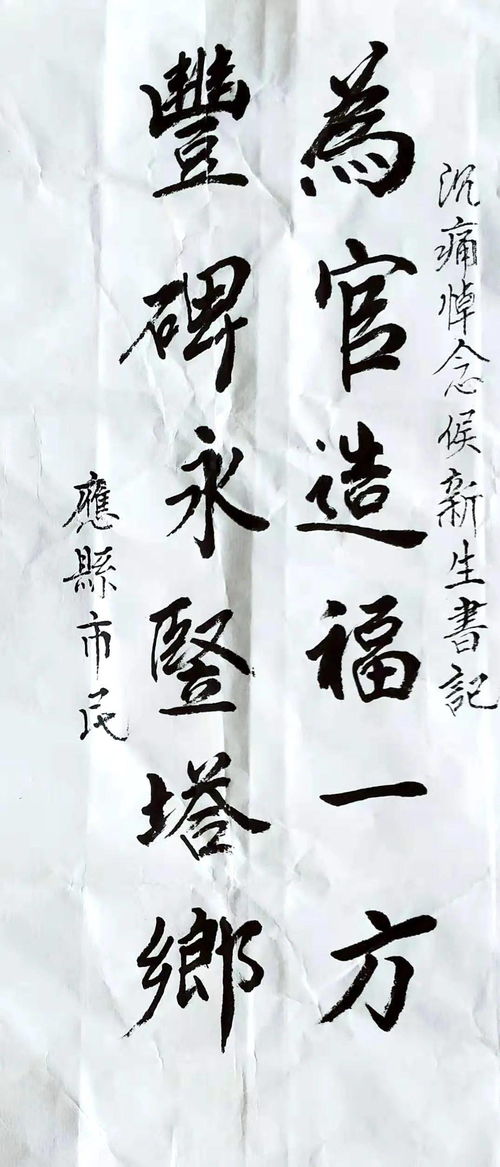 沉痛悼念侯新生書記
為官造福一方
豐碑永豎塔鄉
應縣市民